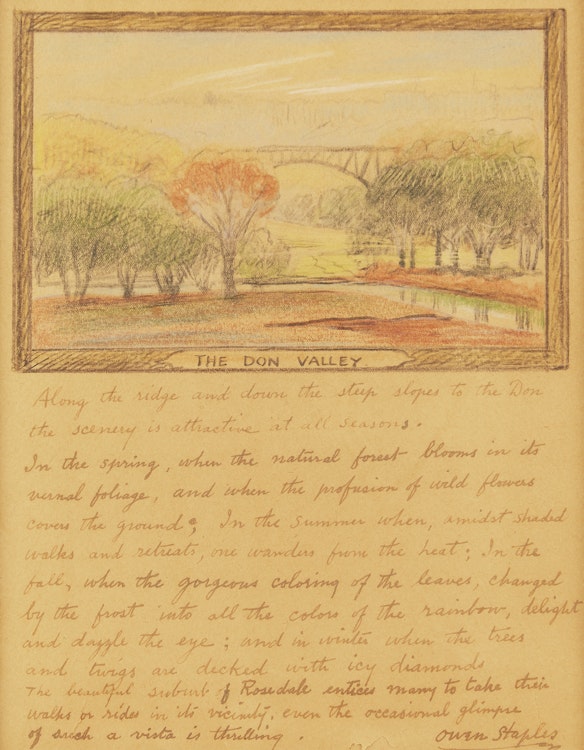 THE DON VALLEY
Along the ridge and down the steep slopes to the Don
the scenery is attractive at all seasons.
In the spring, when the natural forest blooms in its
vernal foliage, and when the profusion of wild flowers
covers the ground; In the summer when, amidst shaded
walks and retreats, one wanders from the heat; In the
fall, when the gorgeous coloring of the leaves, changed
by the frost into all the colors of the rainbow, delight
and dazzle the eye; and in winter when the trees
and twigs are decked with icy diamonds
The beautiful suburb of Rosedale entices many to take their
walks or rides in its vicinity, even the occasional glimpse
of such a vista is thrilling. Owen Staples